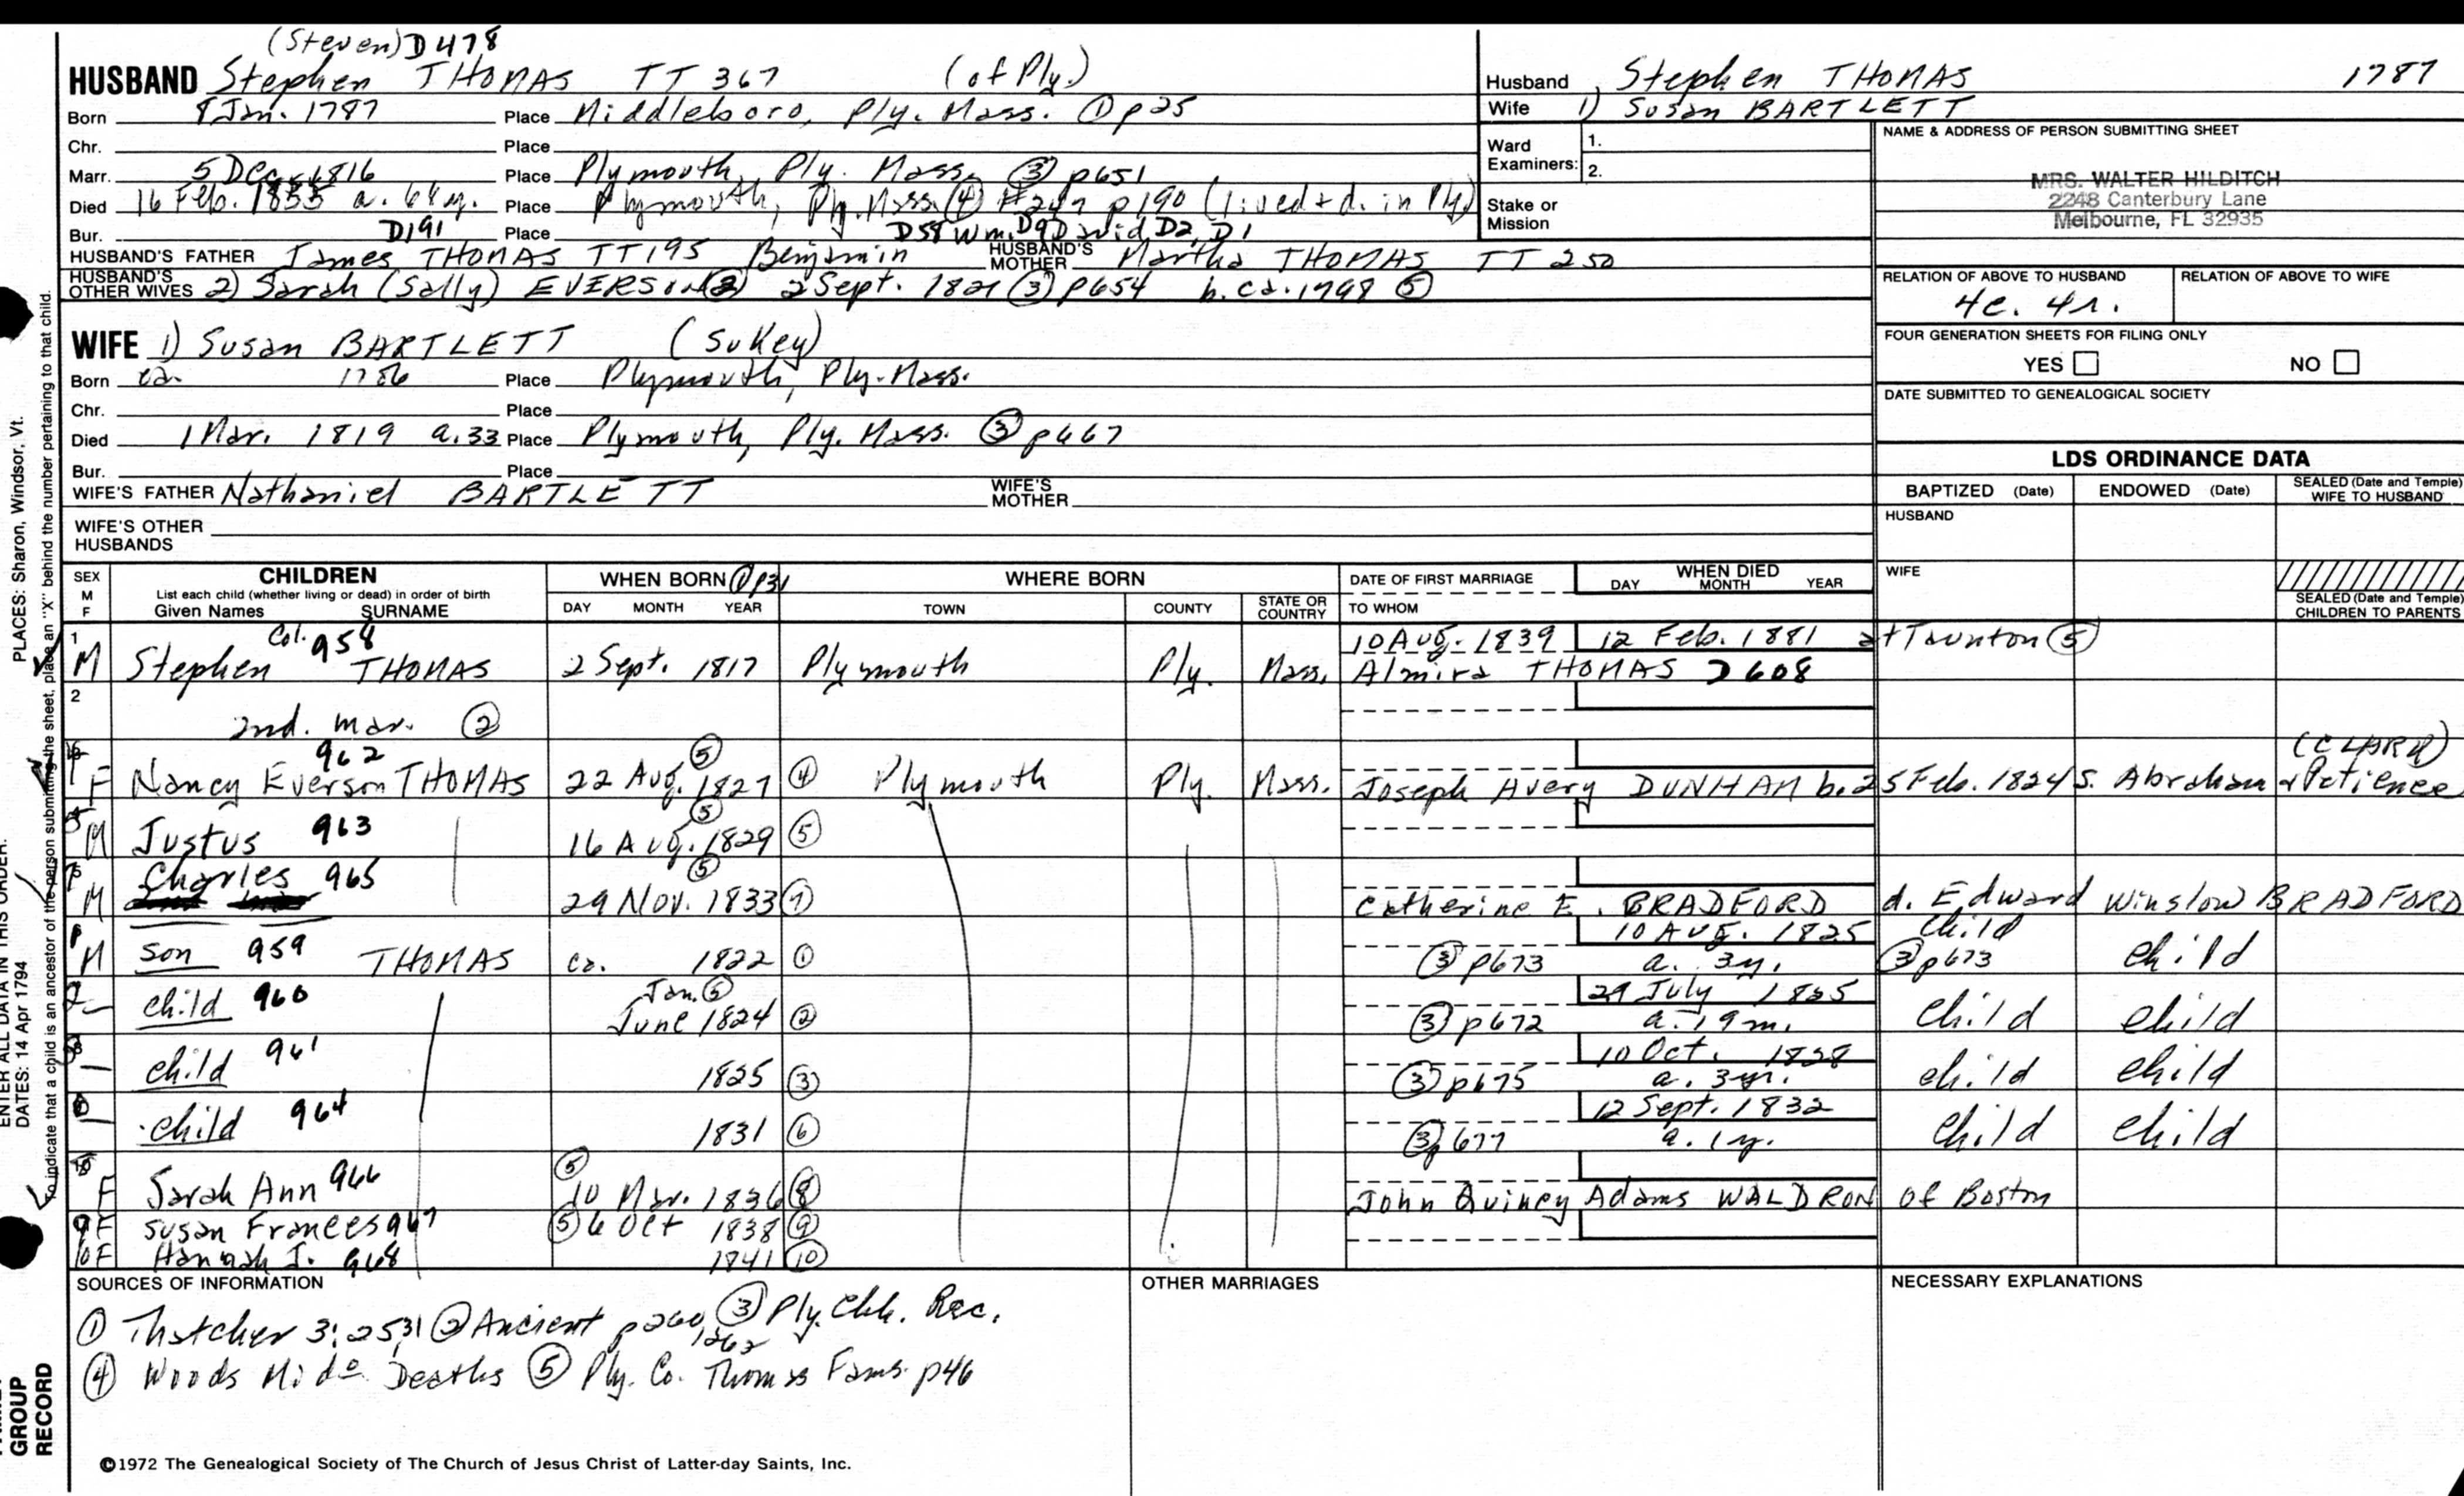 (Steven) D478
HUSBAND Stephen THOMAS TT 367 (of Ply.)
Born 8 Jan. 1787 Place Middleboro, Ply. Mass. ① p25
Chr. Place
Marr. 5 Dec. 1816 Place Plymouth, Ply. Mass. ③ p651
Died 16 Feb. 1855 a. 68 y. Place Plymouth, Ply. Mass. ④ #247 p190 (lived + d. in Ply)
Bur. D191 Place D58 Wm. D9 David D2, D1
HUSBAND'S FATHER James THOMAS TT195 Benjamin HUSBAND'S MOTHER Martha THOMAS TT 250
HUSBAND'S OTHER WIVES 2) Sarah (Sally) EVERSON ② 2 Sept. 1821 ③ p654 b. ca. 1798 ⑤
WIFE 1) Susan BARTLETT (Sukey)
Born ca. 1786 Place Plymouth, Ply. Mass.
Chr. Place
Died 1 Mar. 1819 a. 33 Place Plymouth, Ply. Mass. ③ p667
Bur. Place
WIFE'S FATHER Nathaniel BARTLETT WIFE'S MOTHER
WIFE'S OTHER HUSBANDS
Husband Stephen THOMAS 1787
Wife 1) Susan BARTLETT
Ward Examiners: 1. 2.
Stake or Mission
NAME & ADDRESS OF PERSON SUBMITTING SHEET
MRS. WALTER HILDITCH
2248 Canterbury Lane
Melbourne, FL 32935
RELATION OF ABOVE TO HUSBAND RELATION OF ABOVE TO WIFE
4c. 4r.
FOUR GENERATION SHEETS FOR FILING ONLY
YES NO
DATE SUBMITTED TO GENEALOGICAL SOCIETY
LDS ORDINANCE DATA
BAPTIZED (Date) ENDOWED (Date) SEALED (Date and Temple) WIFE TO HUSBAND
HUSBAND
WIFE
SEALED (Date and Temple) CHILDREN TO PARENTS
SEX M F CHILDREN WHEN BORN ① p31 WHERE BORN DATE OF FIRST MARRIAGE WHEN DIED
List each child (whether living or dead) in order of birth
Given Names SURNAME DAY MONTH YEAR TOWN COUNTY STATE OR COUNTRY TO WHOM DAY MONTH YEAR
1 Col. 958 10 Aug. 1839 12 Feb. 1881 at Taunton ⑤
M Stephen THOMAS 2 Sept. 1817 Plymouth Ply. Mass. Almira THOMAS D608
2
2nd. mar. ②
962 ⑤ (CLARK)
F Nancy Everson THOMAS 22 Aug. 1827 ④ Plymouth Ply. Mass. Joseph Avery DUNHAM b. 25 Feb. 1824 S. Abraham & Patience
M Justus 963 16 Aug. 1829 ⑤ ⑤
M Charles 965 29 Nov. 1833 ⑤ ⑦ Catherine E. BRADFORD d. Edward Winslow BRADFORD
10 Aug. 1825 child
M son 959 THOMAS ca. 1822 ① ③ p673 a. 3y. ③ p673 child
Jan. ⑤ 29 July 1825
child 960 June 1824 ② ③ p672 a. 19 m. child child
10 Oct. 1828
child 961 1825 ③ ③ p675 a. 3 yr. child child
12 Sept. 1832
child 964 1831 ⑥ ③ p677 a. 1 y. child child
F Sarah Ann 966 ⑤ 10 Mar. 1836 ⑧ John Quincy Adams WALDRON of Boston
9 F Susan Frances 967 ⑤ 6 Oct 1838 ⑨
10 F Hannah J. 968 1841 ⑩
SOURCES OF INFORMATION OTHER MARRIAGES NECESSARY EXPLANATIONS
① Thatcher 3:25, 31 ② Ancient p260, 262 ③ Ply. Chh. Rec.
④ Woods Mido Deaths ⑤ Ply. Co. Thomas Fams. p46
©1972 The Genealogical Society of The Church of Jesus Christ of Latter-day Saints, Inc.
PLACES: Sharon, Windsor, Vt.
To indicate that a child is an ancestor of the person submitting the sheet, place an "X" behind the number pertaining to that child.
ENTER ALL DATA IN THIS ORDER:
DATES: 14 Apr 1794
GROUP
RECORD